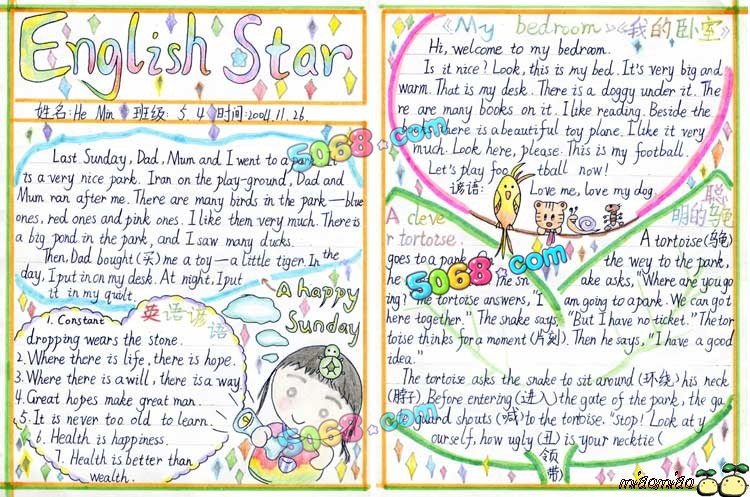 English Star
姓名:He Min 班级: 5.4 时间:2004.11.26.
Last Sunday, Dad, Mum and I went to a park. It
is a very nice park. I ran on the play-ground, Dad and
Mum ran after me. There are many birds in the park—blue
ones, red ones and pink ones. I like them very much. There is
a big pond in the park, and I saw many ducks.
Then, Dad bought(买) me a toy—a little tiger. In the
day, I put in on my desk. At night, I put
it in my quilt.
A happy
Sunday
英语谚语
1. Constant
dropping wears the stone.
2. Where there is life, there is hope.
3. Where there is a will, there is a way
4. Great hopes make great man.
5. It is never too old to learn.
6. Health is happiness.
7. Health is better than
wealth.
《My bedroom》《我的卧室》
Hi, welcome to my bedroom.
Is it nice? Look, this is my bed. It's very big and
warm. That is my desk. There is a doggy under it. The
re are many books on it. I like reading. Beside the
there is a beautiful toy plane. I like it very
much. Look here, please. This is my football.
Let's play football now!
谚语: Love me, love my dog.
A cleve
r tortoise.
聪
明的乌龟
A tortoise(乌龟)
goes to a park. the wey to the park,
he the sn ake asks, "Where are you go
ing? The tortoise answers, I am going to a park. We can got
here together." The snake says, "But I have no ticket." The tor
toise thinks for a moment (片刻). Then he says, "I have a good
idea."
The tortoise asks the snake to sit around (环绕) his neck
(脖子). Before entering (进入) the gate of the park, the ga
guard shouts (喊) to the tortoise. "Stop! Look at y
ourself, how ugly (丑) is your necktie (
领
带)
5068.com
5068.com
5068.com
miaomiao